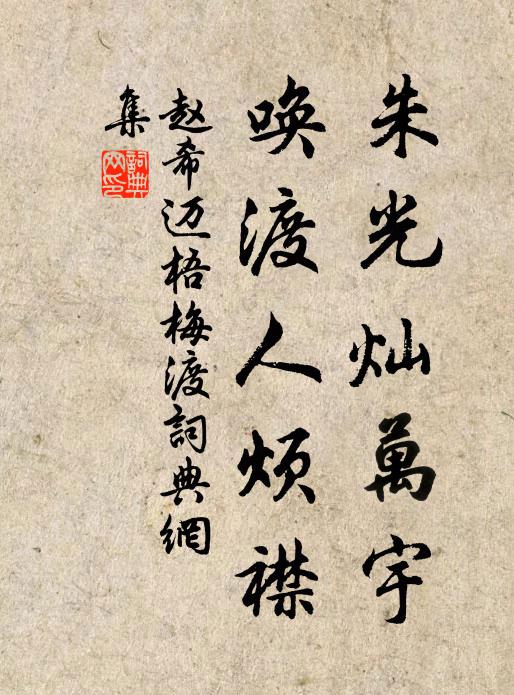 朱光灿萬宇
唤渡人烦襟
赵希迈梧梅渡詞典網
集
詞典
网印